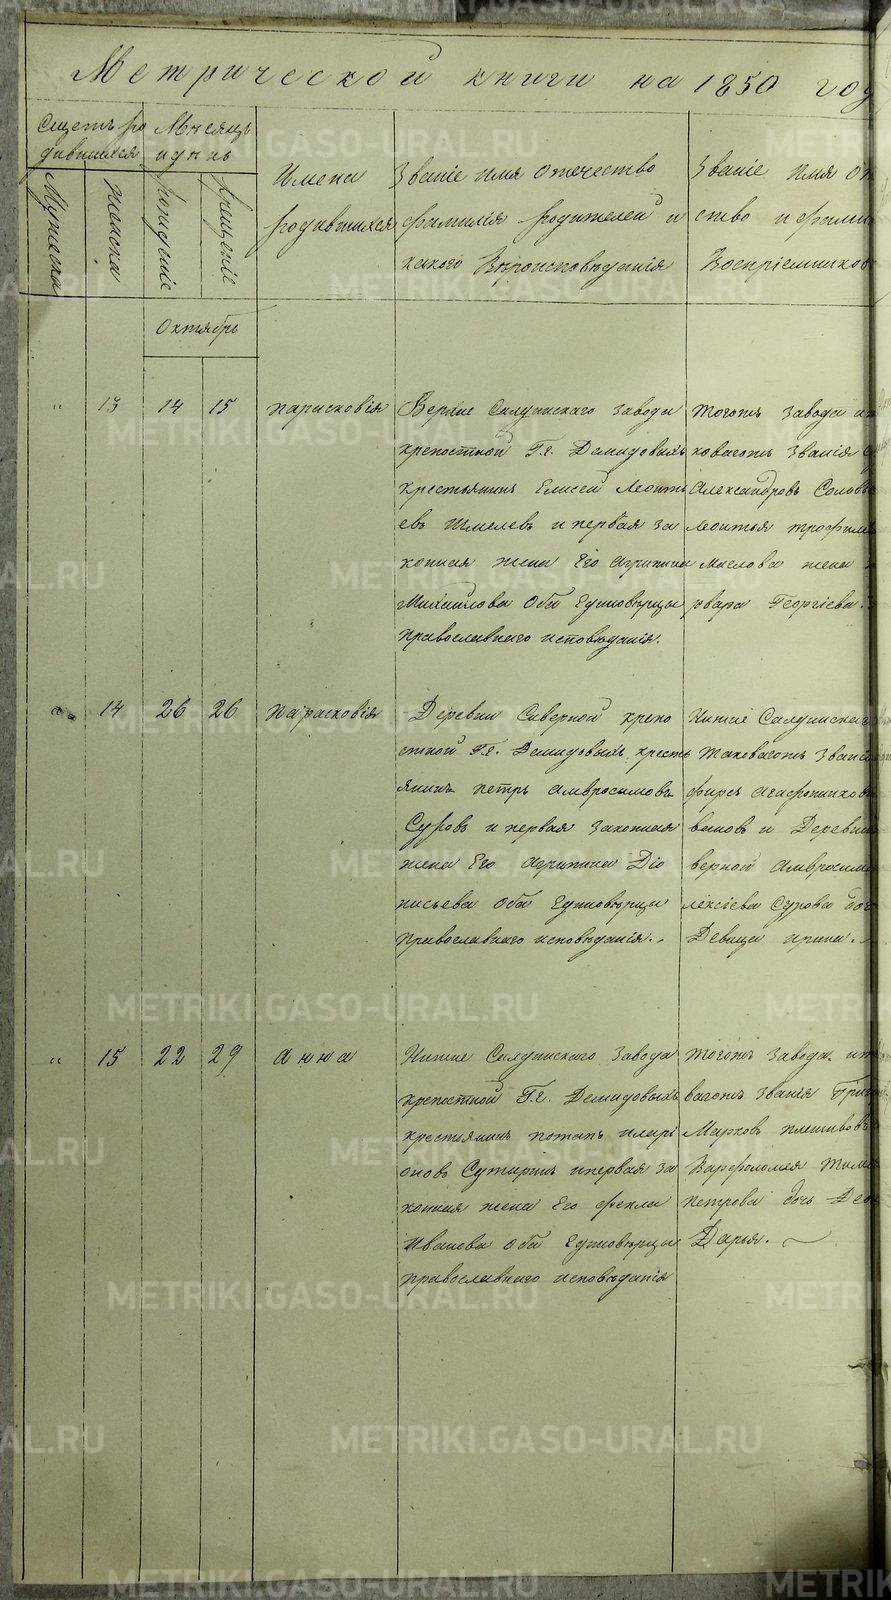 Метрической книги на 1850 год
Счетъ ро
дившихся
Мужеска
Женска
Месяцъ
и день
Рождение
Крещение
Имена
родившихся
Званіе имя отечество
фамилія родителей и
какого Вероисповеданія
Званіе имя от
ство и фамил
Воспріемников
Октябрь
"
13
14
15
Парасковія
Верхне Салдинскаго завода
крепостной Г.г. Демидовыхъ
крестьянинъ Елисей Леонть
евъ Шмелевъ и первая за
конная жена Его Агрипина
Михайлова Оба Единоверцы
православнаго исповеданія.
Тогожъ завода и т
ковагожъ званія
Александровъ Соловь
Леонтья Трофим
Маслова жена
рвара Георгіева.
14
26
26
Парасковія
Деревни Северной крепо
стной Г.г. Демидовыхъ кресть
янинъ Петръ Амвросимовъ
Суровъ и первая законная
жена Его Агрипина Діо
нисьева Оба Единоверцы
Православнаго исповеданія.
Нижне Салдинскаг
таковагожъ званія
фирсъ Агафонинков
вановъ и Деревни
верной Амвросим
лексіева Сурова доч
Девица Ирина.
"
15
22
29
Анна
Нижне Салдинскаго завода
крепостной Г.г. Демидовыхъ
крестьянинъ Потапъ Илари
оновъ Сутиринъ и первая за
конная жена Его Фекла
Иванова Оба Единоверцы
православнаго исповеданія
Тогожъ завода. и т
вагожъ званія Григ
Марковъ Плешивовъ
Варфоломея Тим
Петрова дочь Дев
Дарья.
METRIKI.GASO-URAL.RU